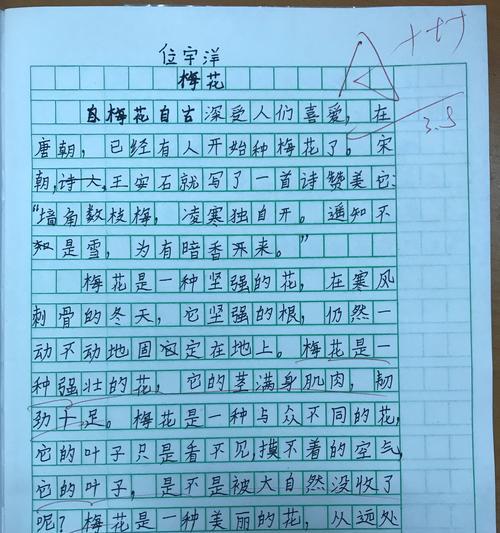 位宇洋
A+++
梅花
3.5
梅花自古深受人们喜爱，在
唐朝，已经有人开始种梅花了。宋
朝，诗人王安石就写了一首诗赞美它：
“墙角数枝梅，凌寒独自开。遥知不
是雪，为有暗香来。”
梅花是一种坚强的花，在寒风
刺骨的冬天，它坚强的根，仍然一
动不动地固定在地上。梅花是一
种强壮的花，它的茎满身肌肉，韧
劲十足。梅花是一种与众不同的花，
它的叶子只是看不见，摸不着的空气，
它的叶子，是不是被大自然没收了
呢？梅花是一种美丽的花，从远处